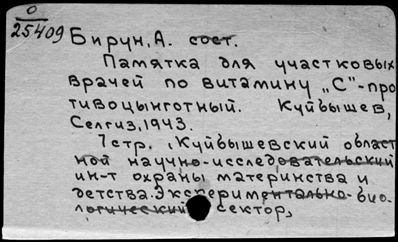 0
25409
Бирун, А. сост.
Памятка для участковых
врачей по витамину „С"-про
тивоцынготный. Куйбышев,
Селгиз, 1943.
7 стр. (Куйбышевский област
ной научно-исследовательский
ин-т охраны материнства и
детства. Экспериментально-био-
логический сектор,